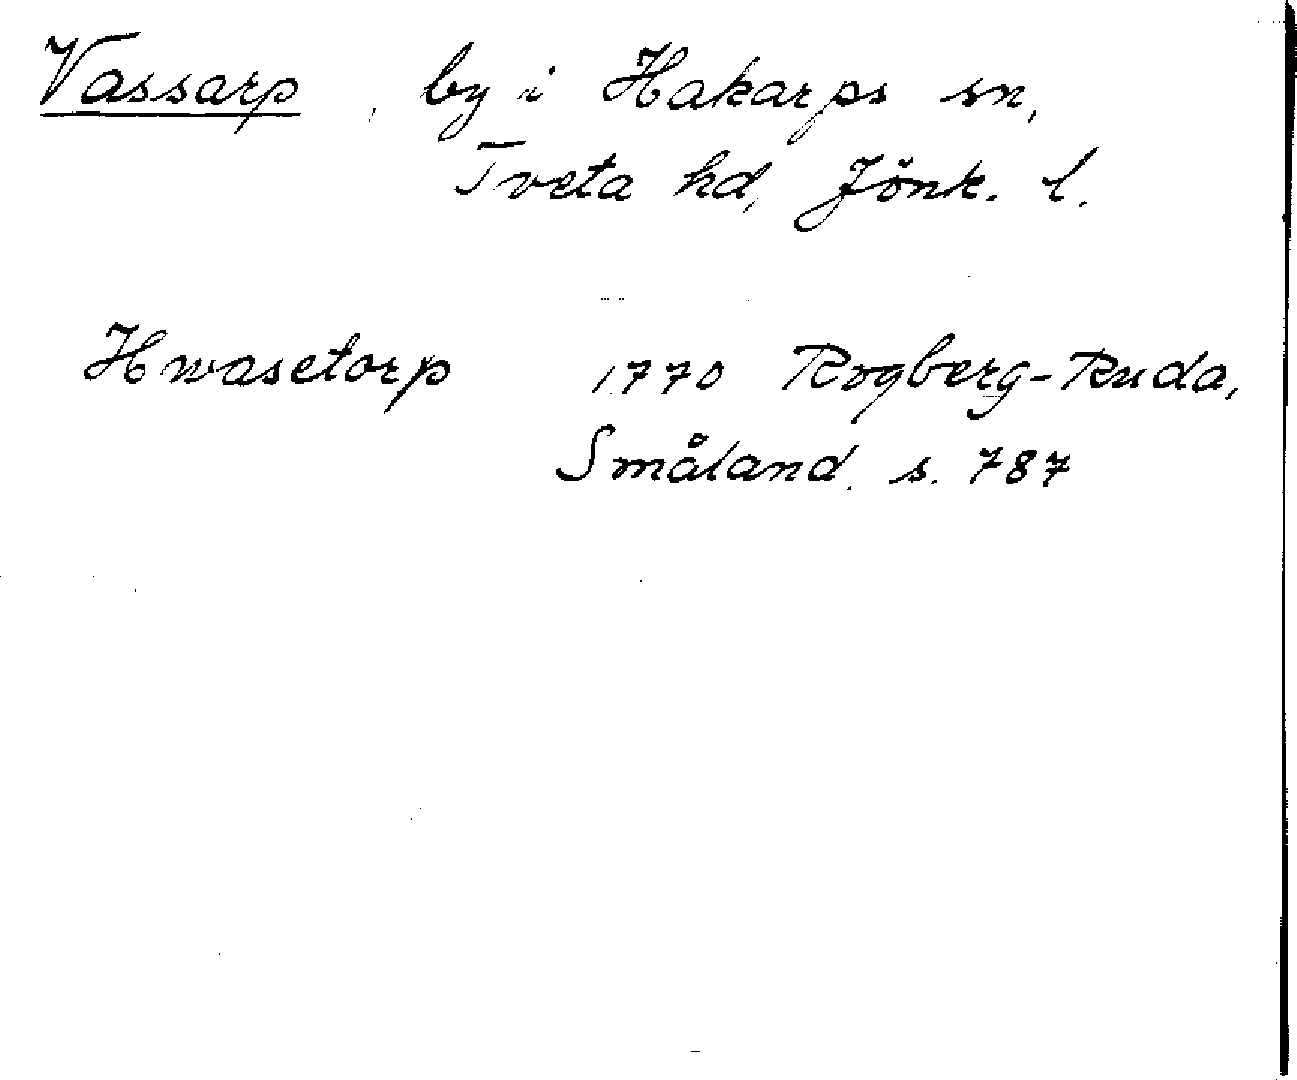 Vassarp, by i Hakarps sn,
Tveta hd, Jönk. l.
Hwasetorp 1770 Rogberg-Ruda,
Småland s. 787